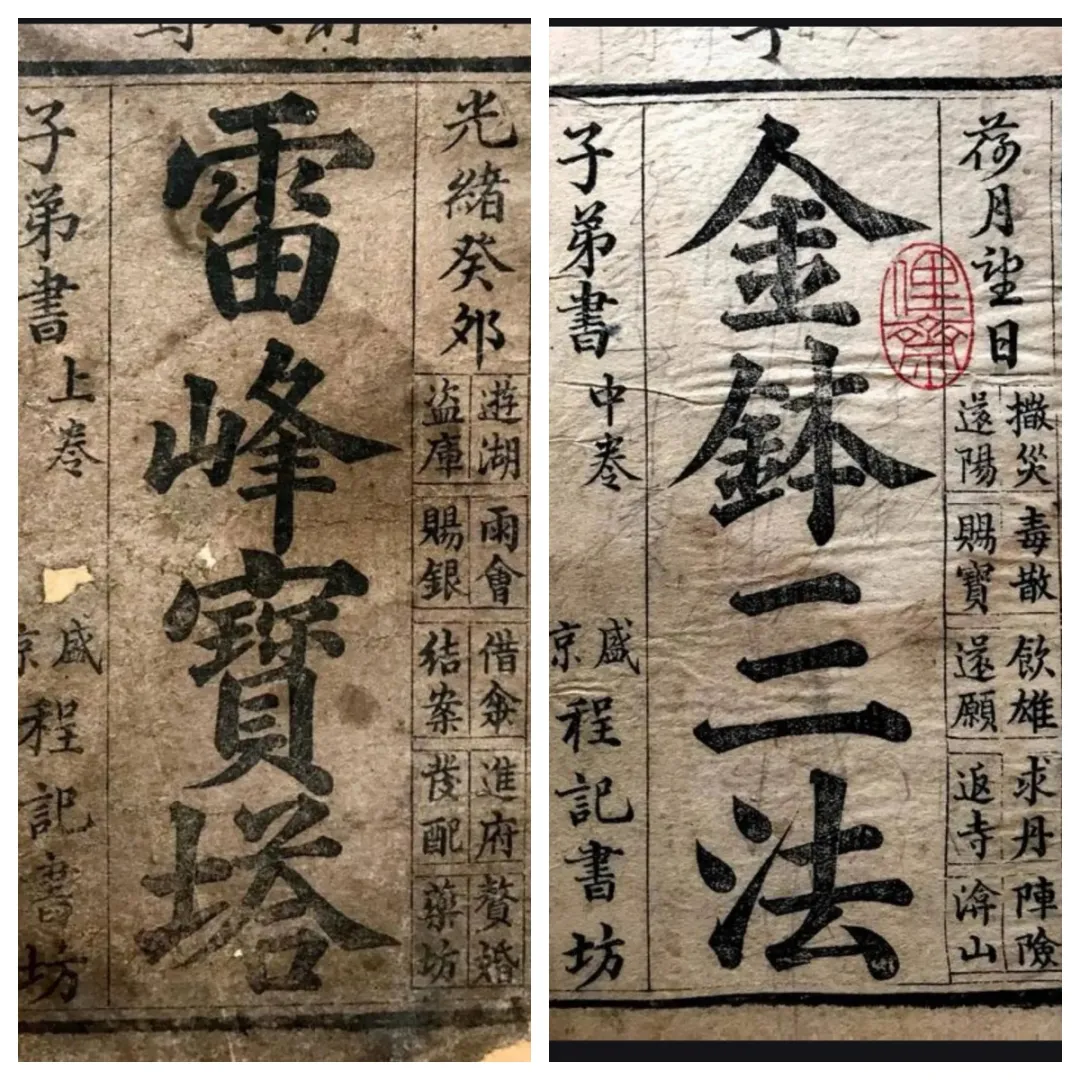 光緒癸夘
遊湖
盜庫
雨會
賜銀
借傘
結案
進府
發配
贅婚
藥坊
雷峰寶塔
子弟書 上卷
盛京 程記書坊
荷月望日
撒災
還陽
毒散
賜寶
飲雄
還願
求丹
返寺
陣險
渰山
金鉢三法
子弟書 中卷
盛京 程記書坊